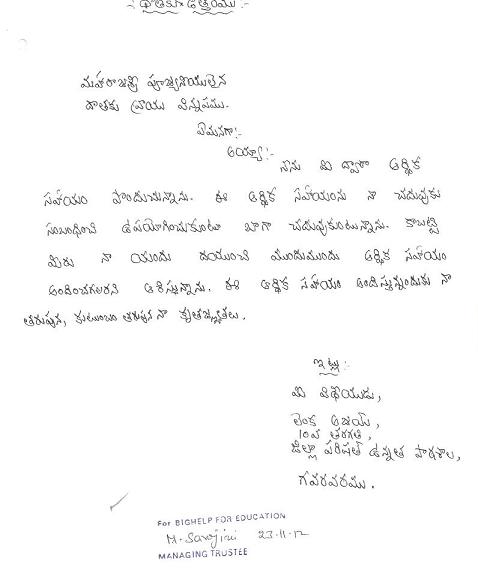 :- దాతకు ఉత్తరము :-
మహారాజశ్రీ పూజ్యనీయులైన
దాతకు వ్రాయు విన్నపము.
ఏమనగా!-
అయ్యా!-
నేను మీ ద్వారా ఆర్థిక
సహాయం పొందుచున్నాను. ఈ ఆర్థిక సహాయంను నా చదువుకు
సంబంధించి ఉపయోగించుకుంటూ బాగా చదువుకుంటున్నాను. కాబట్టి
మీరు నా యందు దయుంచి ముందుముందు ఆర్థిక సహాయం
అందించగలరని ఆశిస్తున్నాను. ఈ ఆర్థిక సహాయం అందిస్తున్నందుకు నా
తరుపున, కుటుంబం తరుపున నా కృతజ్ఞతలు.
ఇట్లు:-
మీ విధేయుడు,
లెంక అజయ్,
10వ తరగతి,
జిల్లా పరిషత్ ఉన్నత పాఠశాల,
గవరవరము.
For BIGHELP FOR EDUCATION
M. Sarojini 23-11-12
MANAGING TRUSTEE